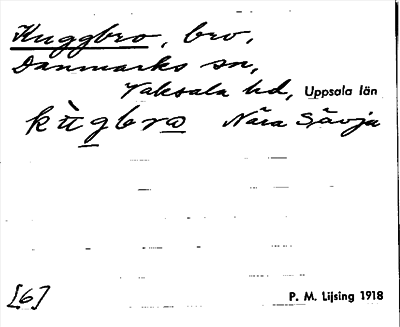 Kuggbro, bro,
Danmarks sn,
Vaksala hd, Uppsala län
kùgbro Nära Sävja
[6] P. M. Lijsing 1918